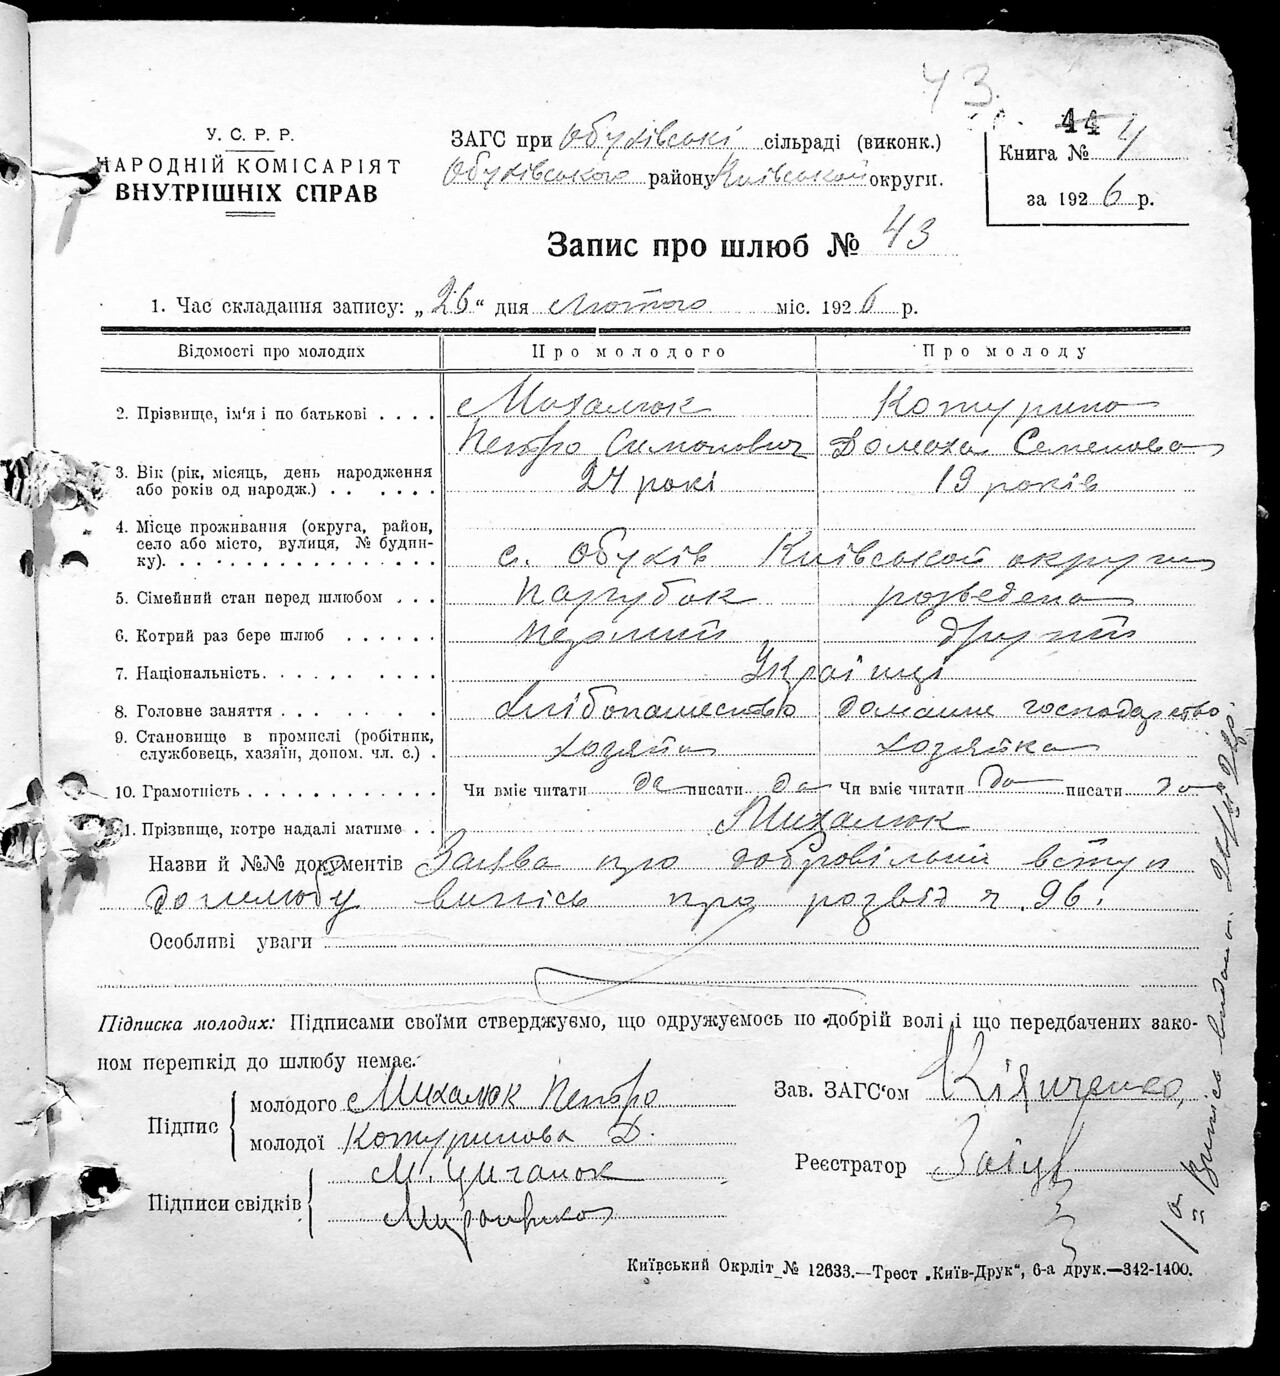 43.
У. С. Р. Р.
НАРОДНІЙ КОМІСАРІЯТ
ВНУТРІШНІХ СПРАВ
ЗАГС при Обухівські сільраді (виконк.)
Обухівського району Київськой округи.
44
Книга № 4
за 1926 р.
Запис про шлюб № 43
1. Час складання запису: „26" дня лютого міс. 1926 р.
Відомості про молодих Про молодого Про молоду
2. Прізвище, ім'я і по батькові . . . . Михалюк Котурина
Петро Симонович Домаха Семенова
3. Вік (рік, місяць, день народження
або років од народж.) . . . . . . 24 рокі 19 років
4. Місце проживання (округа, район,
село або місто, вулиця, № будин-
ку). . . . . . . . . . . . . . . . . с. Обухів Київськой округи
5. Сімейний стан перед шлюбом . . . Парубок розведена
6. Котрий раз бере шлюб . . . . . . первий другий
7. Національність. . . . . . . . . . Українці
8. Головне заняття . . . . . . . . хлібопашество домашне господарство
9. Становище в промислі (робітник,
службовець, хазяїн, допом. чл. с.) . хозяїн хозяйка
10. Грамотність . . . . . . . . . . . . Чи вміє читати да писати да Чи вміє читати да писати да
11. Прізвище, котре надалі матиме . . Михалюк
Назви й №№ документів Заява про добровільний вступ
до шлюбу випісь про розвід ч. 96.
Особливі уваги
Підписка молодих: Підписами своїми стверджуємо, що одружуємось по добрій волі і що передбачених зако-
ном перешкід до шлюбу немає.
Підпис
молодого Михалюк Петро
молодої Котуринова Д.
Підписи свідків
М. Циганок
Зав. ЗАГС'ом
Реєстратор
Випісь видана
Київський Окрліт № 12633.—Трест „Київ-Друк", 6-а друк.—342-1400.